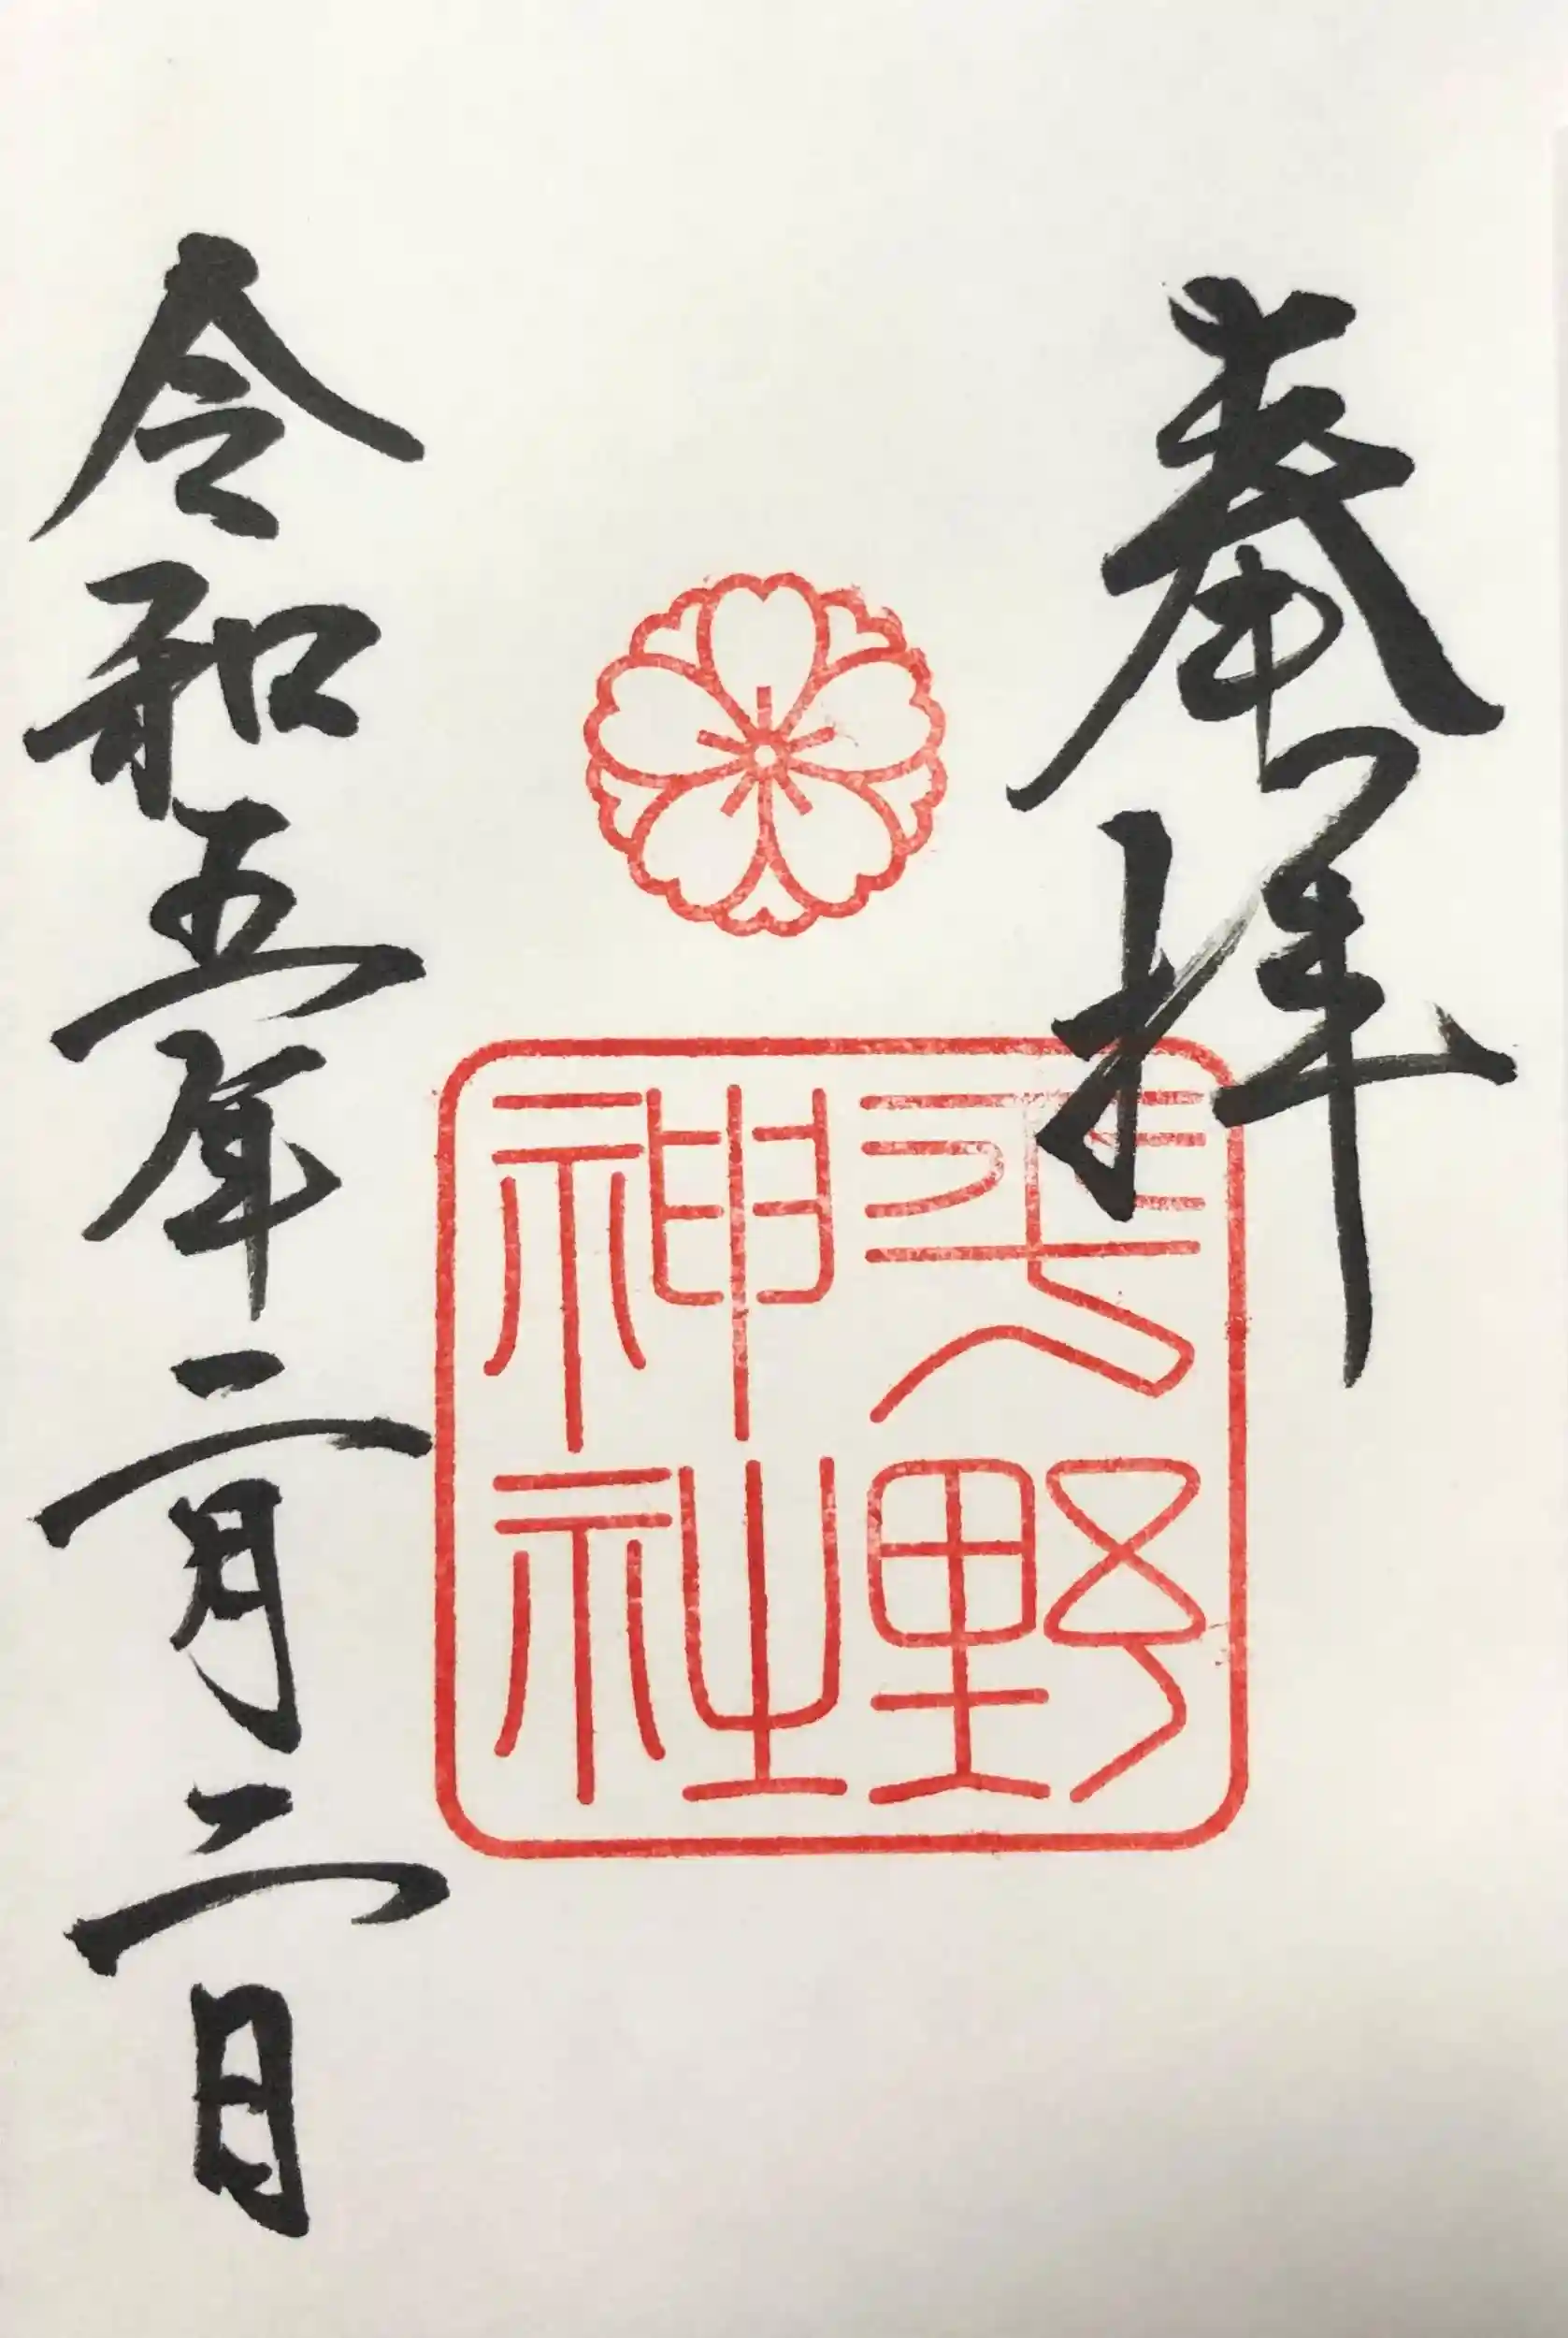 奉拝
長野
神社
令和五年二月二日